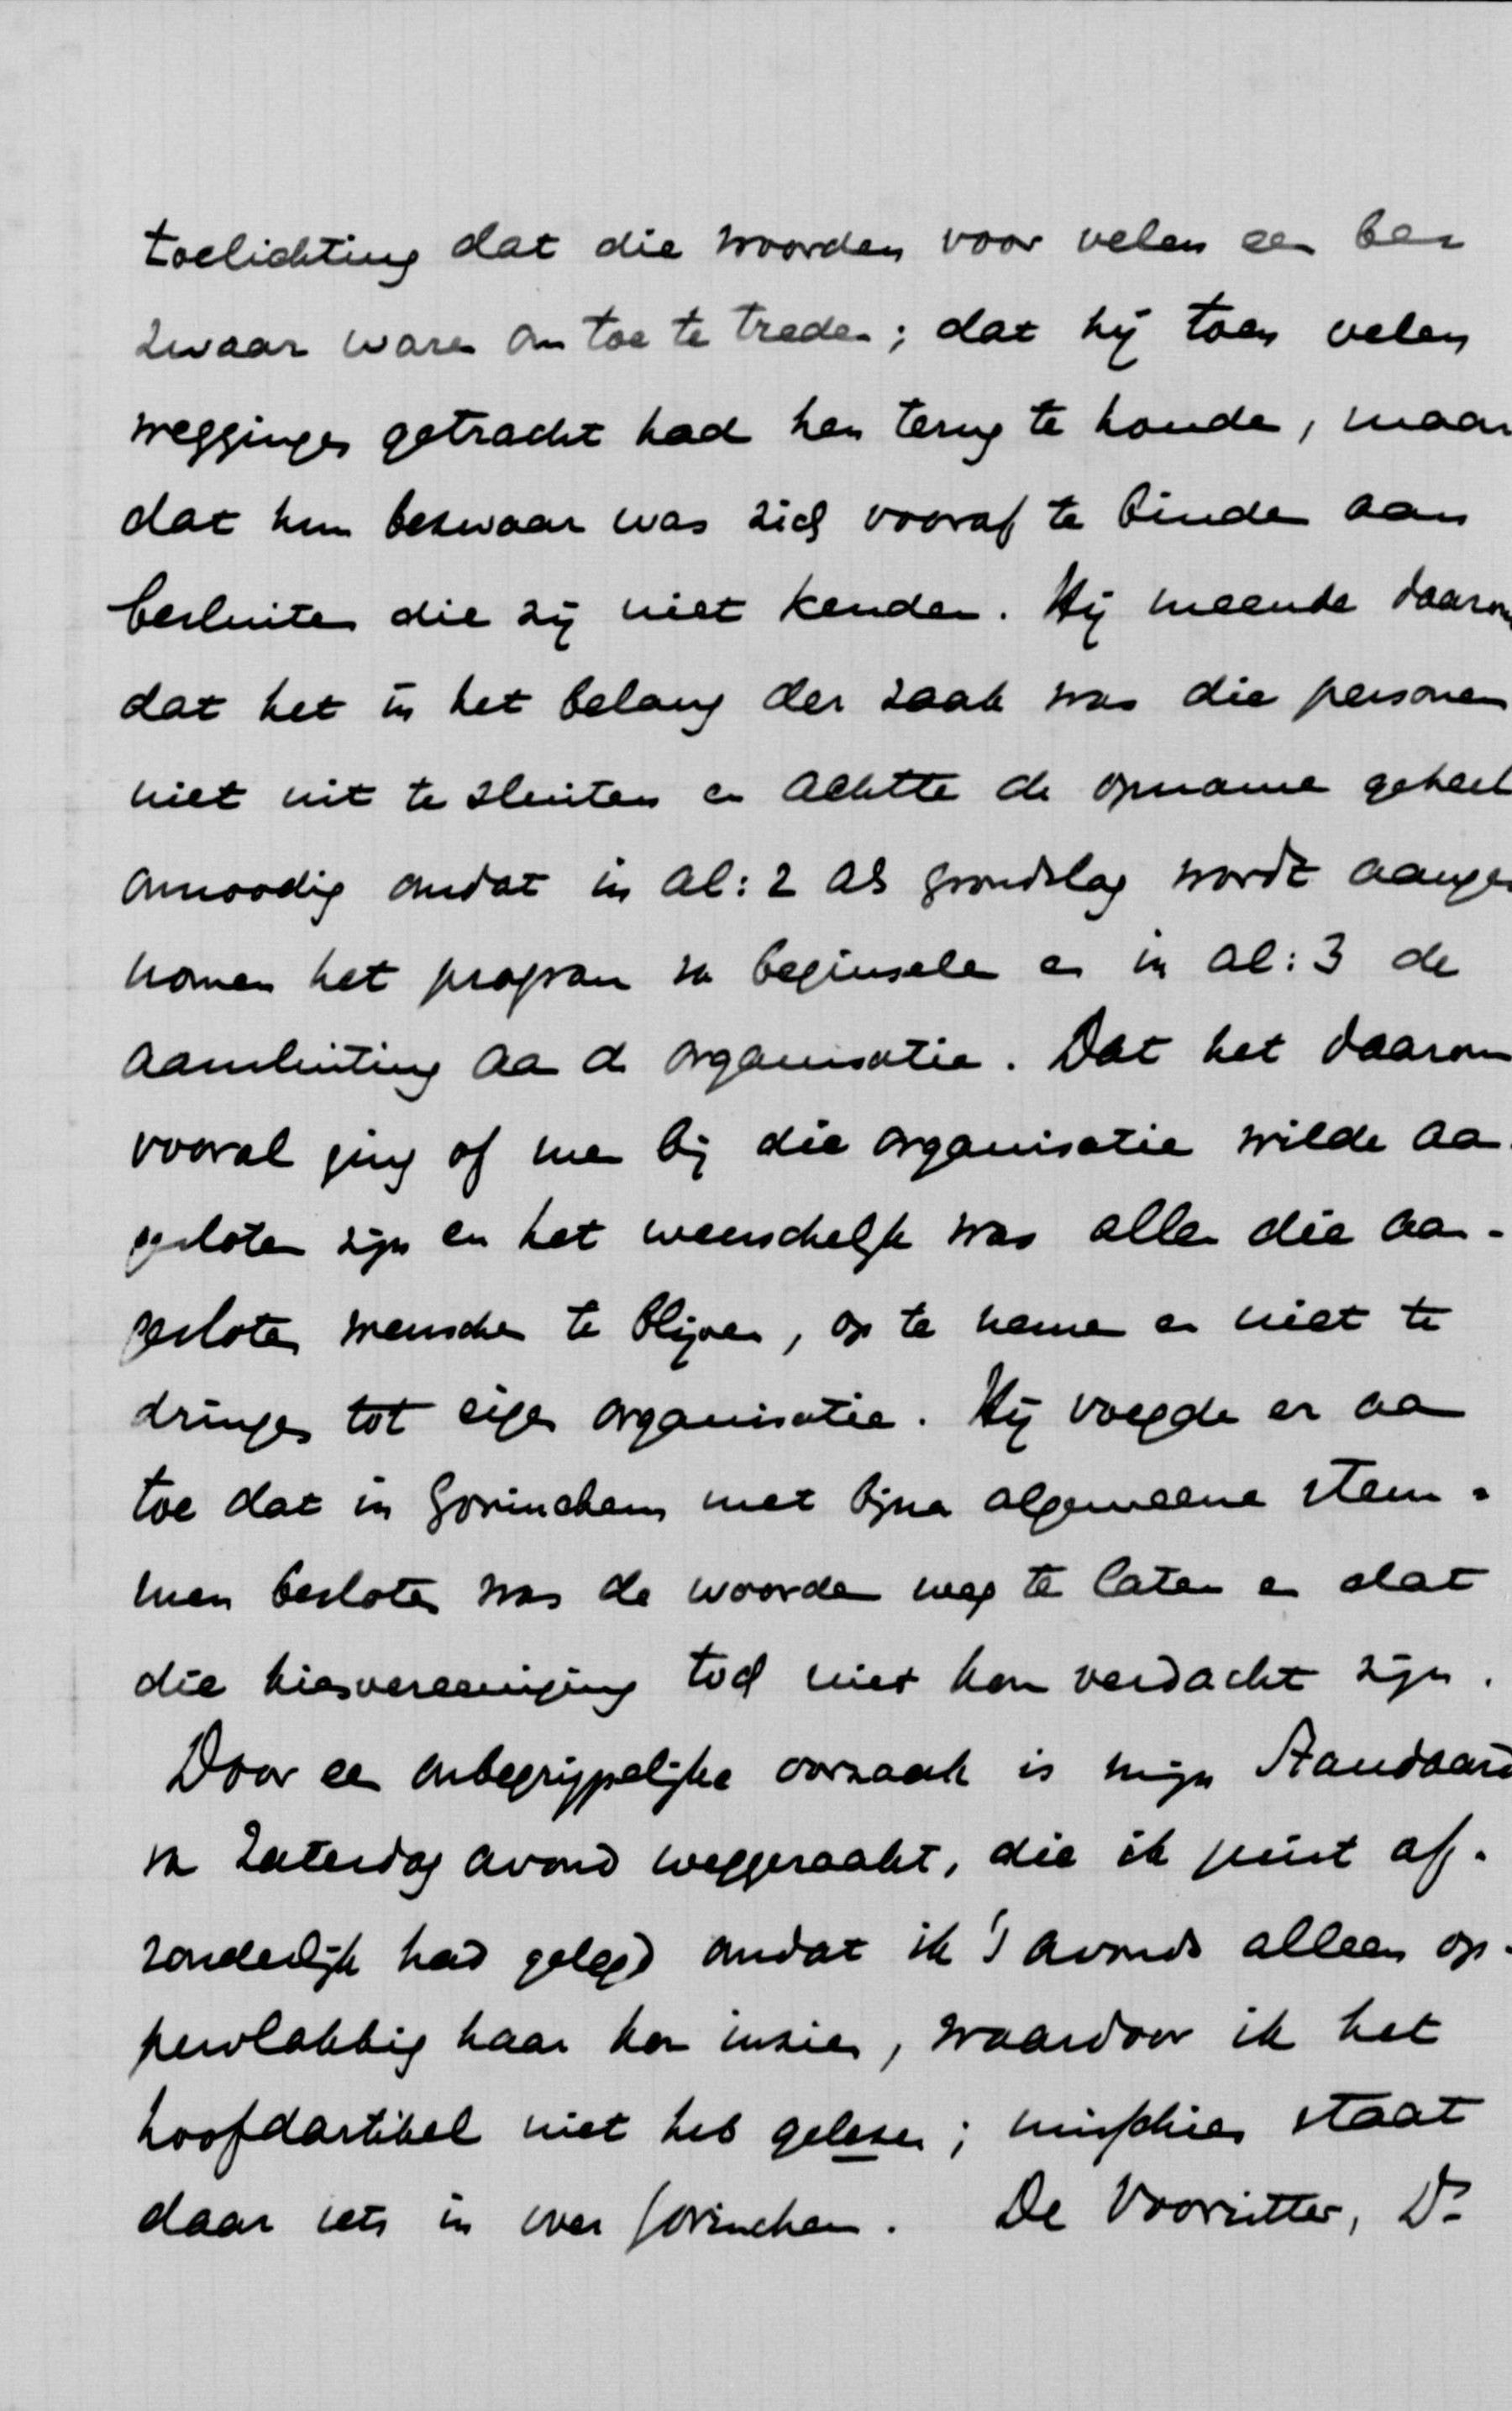 toelichting dat die woorden voor velen een be=
zwaar waren om toe te treden; dat hij toen velen
weggingen getracht had hen terug te houden, maar
dat hun bezwaar was zich vooraf te binden aan
besluiten die zij niet kenden. Hij meende daarom
dat het in het belang der zaak was die personen
niet uit te sluiten en achtte de opname geheel
onnoodig omdat in al: 2 als grondslag wordt aange
nomen het program van beginselen en in al: 3 de
aansluiting aan de organisatie. Dat het daarom
vooral ging of men bij die organisatie wilde aan-
gesloten zijn en het wenschelijk was allen die aan-
gesloten wenschen te blijven, op te nemen en niet te
dringen tot eigen organisatie. Hij voegde er aan
toe dat in Gorinchem met bijna algemeene stem-
men besloten was de woorden weg te laten en dat
die kiesvereeniging toch niet kon verdacht zijn.
Door een onbegrijpelijke oorzaak is mijn Standaard
van Zaterdag avond weggeraakt, die ik juist af-
zonderlijk had gelegd omdat ik 's avonds alleen op-
pervlakkig haar kon inzien, waardoor ik het
hoofdartikel niet heb gelezen; misschien staat
daar iets in over Gorinchem. De Voorzitter, Dr